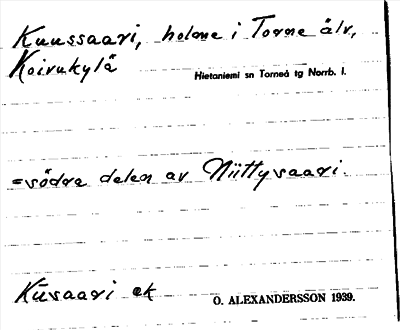 Kuussaari, holme i Torne älv,
Koivukylä
Hietaniemi sn Torneå tg Norrb. l.
=södra delen av Niittysaari.
Kūsaari ek
O. ALEXANDERSSON 1939.